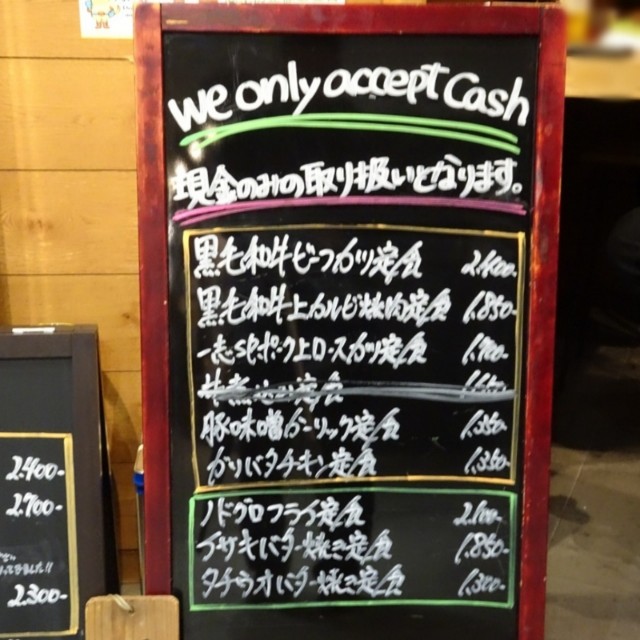 We only accept Cash
現金のみの取り扱いとなります。
黒毛和牛ビーフカツ定食
黒毛和牛上カルビ焼肉定食 1,850-
一志SPポーク上ロースカツ定食
定食
豚味噌ガーリック定食 1,350-
カリバタチキン定食 1,350-
ノドグロフライ定食 2,100-
イサキバター焼き定食 1,850-
タチウオバター焼き定食 1,300-
2.400-
2.700-
2.300-